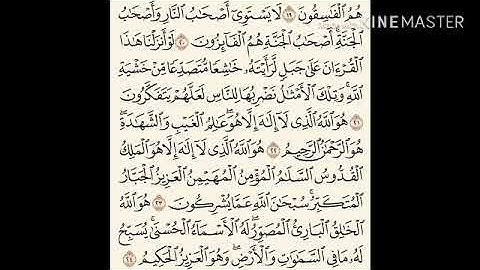 هُمُ ٱلْفَـٰسِقُونَ ١٩ لَا يَسْتَوِىٓ أَصْحَـٰبُ ٱلنَّارِ وَأَصْحَـٰبُ
KINEMASTER
ٱلْجَنَّةِ ۚ أَصْحَـٰبُ ٱلْجَنَّةِ هُمُ ٱلْفَآئِزُونَ ٢٠ لَوْ أَنزَلْنَا هَـٰذَا
ٱلْقُرْءَانَ عَلَىٰ جَبَلٍ لَّرَأَيْتَهُۥ خَـٰشِعًا مُّتَصَدِّعًا مِّنْ خَشْيَةِ
ٱللَّهِ ۚ وَتِلْكَ ٱلْأَمْثَـٰلُ نَضْرِبُهَا لِلنَّاسِ لَعَلَّهُمْ يَتَفَكَّرُونَ
٢١ هُوَ ٱللَّهُ ٱلَّذِى لَآ إِلَـٰهَ إِلَّا هُوَ ۖ عَـٰلِمُ ٱلْغَيْبِ وَٱلشَّهَـٰدَةِ ۖ
هُوَ ٱلرَّحْمَـٰنُ ٱلرَّحِيمُ ٢٢ هُوَ ٱللَّهُ ٱلَّذِى لَآ إِلَـٰهَ إِلَّا هُوَ ٱلْمَلِكُ
ٱلْقُدُّوسُ ٱلسَّلَـٰمُ ٱلْمُؤْمِنُ ٱلْمُهَيْمِنُ ٱلْعَزِيزُ ٱلْجَبَّارُ
ٱلْمُتَكَبِّرُ ۚ سُبْحَـٰنَ ٱللَّهِ عَمَّا يُشْرِكُونَ ٢٣ هُوَ ٱللَّهُ
ٱلْخَـٰلِقُ ٱلْبَارِئُ ٱلْمُصَوِّرُ ۖ لَهُ ٱلْأَسْمَآءُ ٱلْحُسْنَىٰ ۚ يُسَبِّحُ
لَهُۥ مَا فِى ٱلسَّمَـٰوَٰتِ وَٱلْأَرْضِ ۖ وَهُوَ ٱلْعَزِيزُ ٱلْحَكِيمُ ٢٤